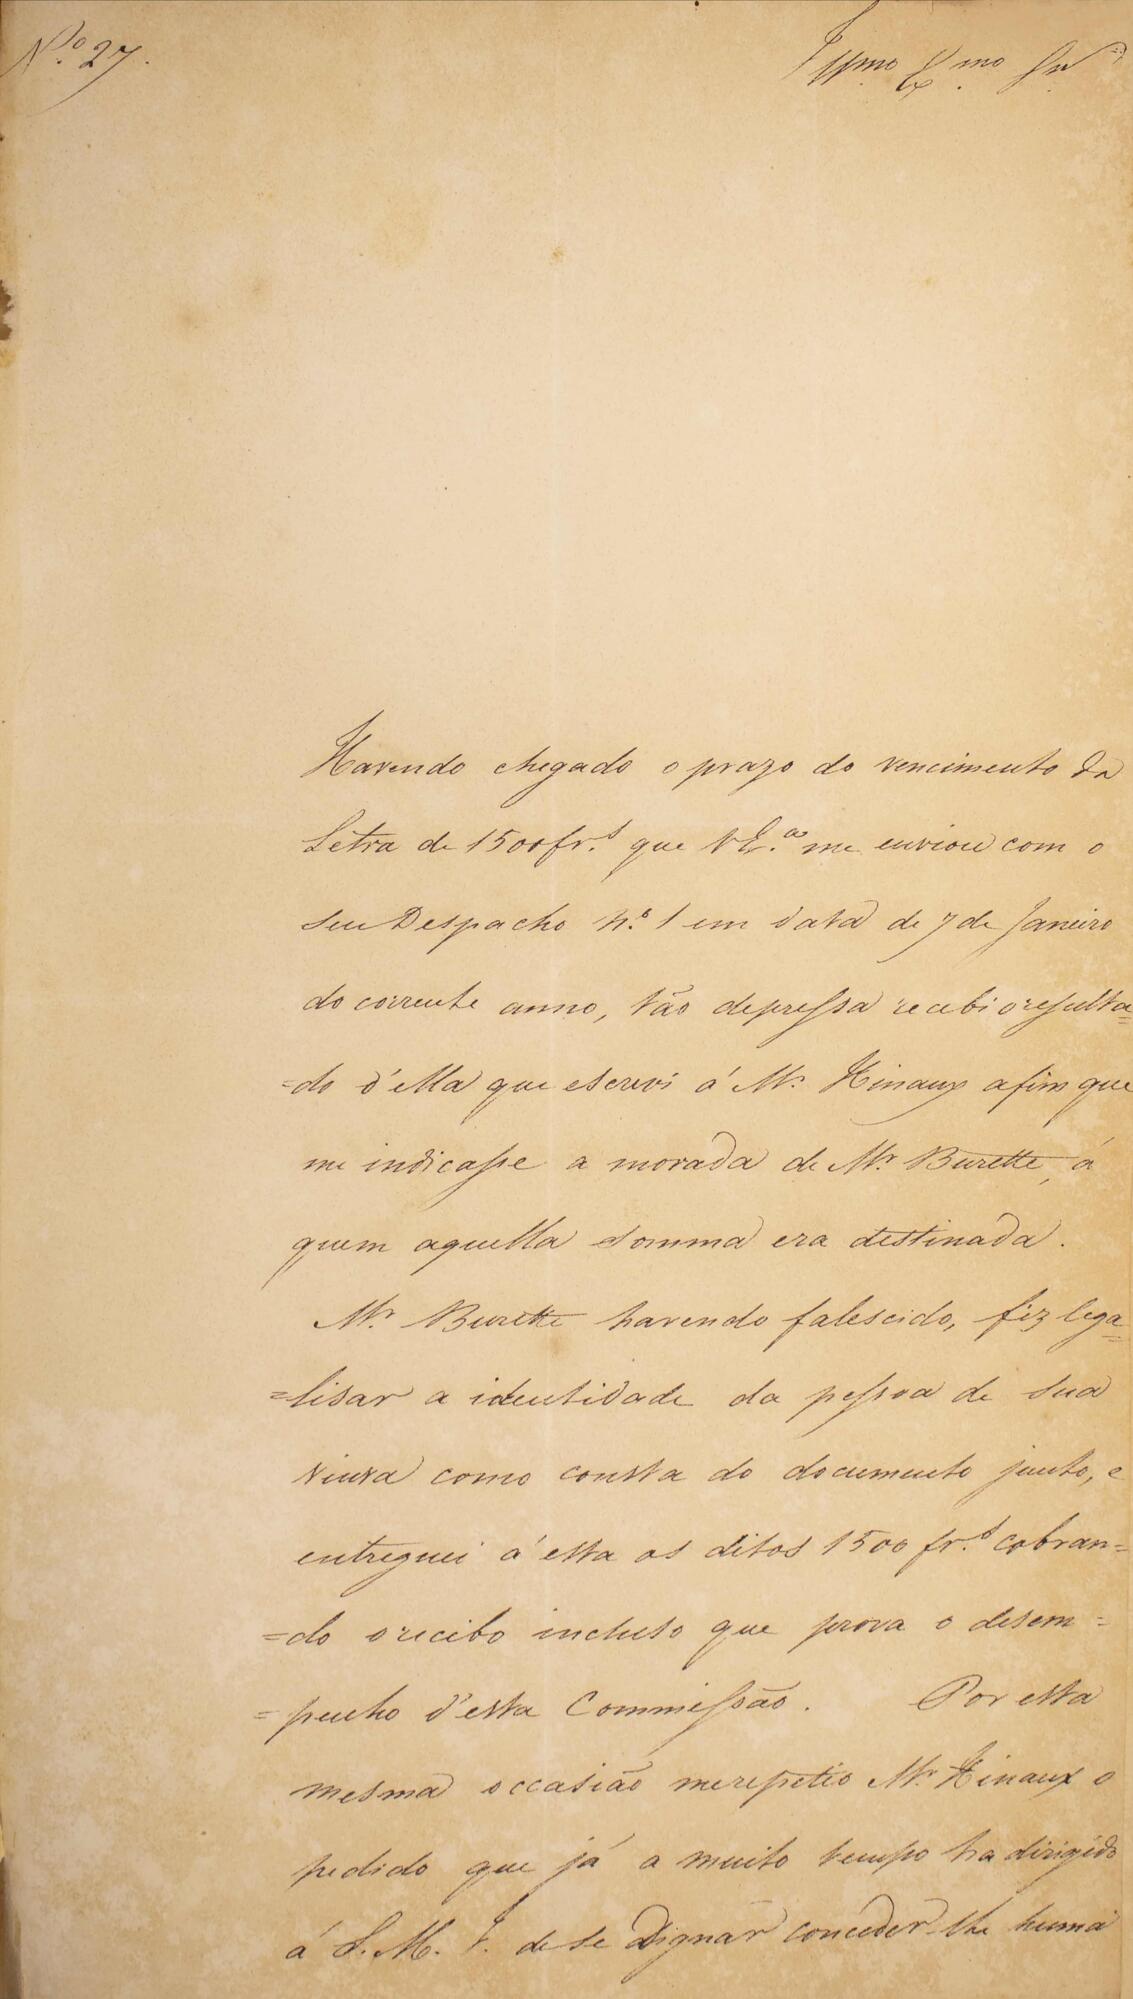 N.º 27.
Illmo. Exmo. Snr
Havendo chegado o prazo do vencimento da
Letra de 1500 fr.s que V E.a me enviou com o
seu Despacho N.º 1 em data de 7 de Janeiro
do corrente anno, tão depressa recebi o resulta=
=do d'ella que escrevi á Mr. Hinaux afim que
me indicasse a morada de Mr. Burette, á
quem aquella somma era destinada.
Mr. Burette havendo falescido, fiz lega=
=lisar a identidade da pessoa de sua
viuva como consta do documento junto, e
entreguei á esta os ditos 1500 fr.s cobran=
=do o recibo incluso que prova o desem=
=penho d'esta Commissão. Por esta
mesma occasião me repetio Mr. Hinaux o
pedido que já a muito tempo ha dirigido
á S. M. I. de se Dignar conceder-lhe huma